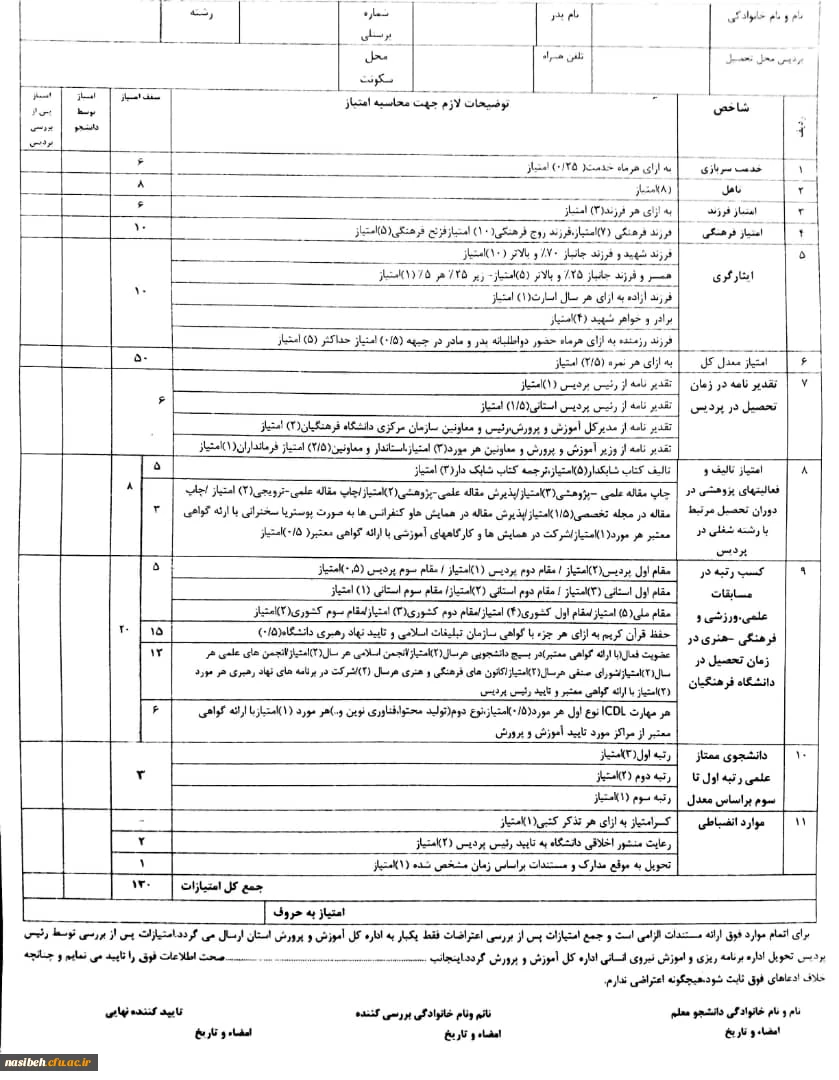 نام و نام خانوادگی نام پدر شماره پرسنلی رشته
پردیس محل تحصیل تلفن همراه محل سکونت
ردیف شاخص توضیحات لازم جهت محاسبه امتیاز سقف امتیاز امتیاز توسط دانشجو امتیاز پس از بررسی پردیس
۱ خدمت سربازی به ازای هرماه خدمت( ۰/۲۵) امتیاز ۶
۲ تاهل (۸)امتیاز ۸
۳ امتیاز فرزند به ازای هر فرزند(۳) امتیاز ۶
۴ امتیاز فرهنگی فرزند فرهنگی (۷)امتیاز،فرزند زوج فرهنگی(۱۰) امتیازفزنج فرهنگی(۵)امتیاز ۱۰
۵ ایثارگری ۱۰
فرزند شهید و فرزند جانباز ۷۰٪ و بالاتر (۱۰)امتیاز
همسر و فرزند جانباز ۲۵٪ و بالاتر (۵)امتیاز- زیر ۲۵٪ هر ۵٪ (۱)امتیاز
فرزند آزاده به ازای هر سال اسارت(۱) امتیاز
برادر و خواهر شهید (۴)امتیاز
فرزند رزمنده به ازای هرماه حضور دواطلبانه پدر و مادر در جبهه (۰/۵) امتیاز حداکثر (۵) امتیاز
۶ امتیاز معدل کل به ازای هر نمره (۲/۵) امتیاز ۵۰
۷ تقدیر نامه در زمان تحصیل در پردیس ۶
تقدیر نامه از رئیس پردیس (۱)امتیاز
تقدیر نامه از رئیس پردیس استانی (۱/۵) امتیاز
تقدیر نامه از مدیرکل آموزش و پرورش،رئیس و معاونین سازمان مرکزی دانشگاه فرهنگیان(۲) امتیاز
تقدیر نامه از وزیر آموزش و پرورش و معاونین هر مورد(۳) امتیاز،استاندار و معاونین(۲/۵) امتیاز فرمانداران(۱)امتیاز
۸ امتیاز تالیف و فعالیتهای پژوهشی در دوران تحصیل مرتبط با رشته شغلی در پردیس ۸
تالیف کتاب شابکدار(۵)امتیاز،ترجمه کتاب شابک دار(۳) امتیاز ۵
چاپ مقاله علمی –پژوهشی(۳)امتیاز/پذیرش مقاله علمی-پژوهشی(۲)امتیاز/چاپ مقاله علمی-ترویجی(۲) امتیاز /چاپ
مقاله در مجله تخصصی(۱/۵)امتیاز/پذیرش مقاله در همایش هاو کنفرانس ها به صورت پوستریا سخنرانی با ارئه گواهی ۳
معتبر هر مورد(۱)امتیاز/شرکت در همایش ها و کارگاههای آموزشی با ارائه گواهی معتبر( ۰/۵)امتیاز
۹ کسب رتبه در مسابقات علمی،ورزشی و فرهنگی -هنری در زمان تحصیل در دانشگاه فرهنگیان ۲۰
مقام اول پردیس(۲)امتیاز / مقام دوم پردیس (۱)امتیاز / مقام سوم پردیس (۰,۵)امتیاز ۵
مقام اول استانی (۳)امتیاز/ مقام دوم استانی (۲)امتیاز/ مقام سوم استانی (۱) امتیاز
مقام ملی(۵) امتیاز/مقام اول کشوری(۴) امتیاز/مقام دوم کشوری(۳) امتیاز/مقام سوم کشوری(۲)امتیاز
حفظ قرآن کریم به ازای هر جزء با گواهی سازمان تبلیغات اسلامی و تایید نهاد رهبری دانشگاه(۰/۵) ۱۵
عضویت فعال(با ارائه گواهی معتبر)در بسیج دانشجویی هرسال(۲)امتیاز/انجمن اسلامی هر سال(۲)امتیاز/انجمن های علمی هر ۱۲
سال(۲)امتیاز/شورای صنفی هرسال(۲)امتیاز/کانون های فرهنگی و هنری هرسال (۲)/شرکت در برنامه های نهاد رهبری هر مورد
(۲)امتیاز با ارائه گواهی معتبر و تایید رئیس پردیس
هر مهارت ICDL نوع اول هر مورد(۰/۵)امتیاز،نوع دوم(تولید محتوا،فناوری نوین و..)هر مورد (۱)امتیازبا ارائه گواهی ۶
معتبر از مراکز مورد تایید آموزش و پرورش
۱۰ دانشجوی ممتاز علمی رتبه اول تا سوم براساس معدل ۳
رتبه اول(۳)امتیاز
رتبه دوم (۲)امتیاز
رتبه سوم (۱)امتیاز
۱۱ موارد انضباطی کسرامتیاز به ازای هر تذکر کتبی(۱)امتیاز -
رعایت منشور اخلاقی دانشگاه به تایید رئیس پردیس (۲)امتیاز ۲
تحویل به موقع مدارک و مستندات براساس زمان مشخص شده (۱)امتیاز ۱
جمع کل امتیازات ۱۳۰
امتیاز به حروف
برای اتمام موارد فوق ارائه مستندات الزامی است و جمع امتیازات پس از بررسی اعتراضات فقط یکبار به اداره کل آموزش و پرورش استان ارسال می گردد.امتیازات پس از بررسی توسط رئیس
پردیس تحویل اداره برنامه ریزی و اموزش نیروی انسانی اداره کل آموزش و پرورش گردد.اینجانب ........................................ صحت اطلاعات فوق را تایید می نمایم و چنانچه
خلاف ادعاهای فوق ثابت شود،هیچگونه اعتراضی ندارم.
نام و نام خانوادگی دانشجو معلم نائم ونام خانوادگی بررسی کننده تایید کننده نهایی
امضاء و تاریخ امضاء و تاریخ امضاء و تاریخ
nasibeh.cfu.ac.ir